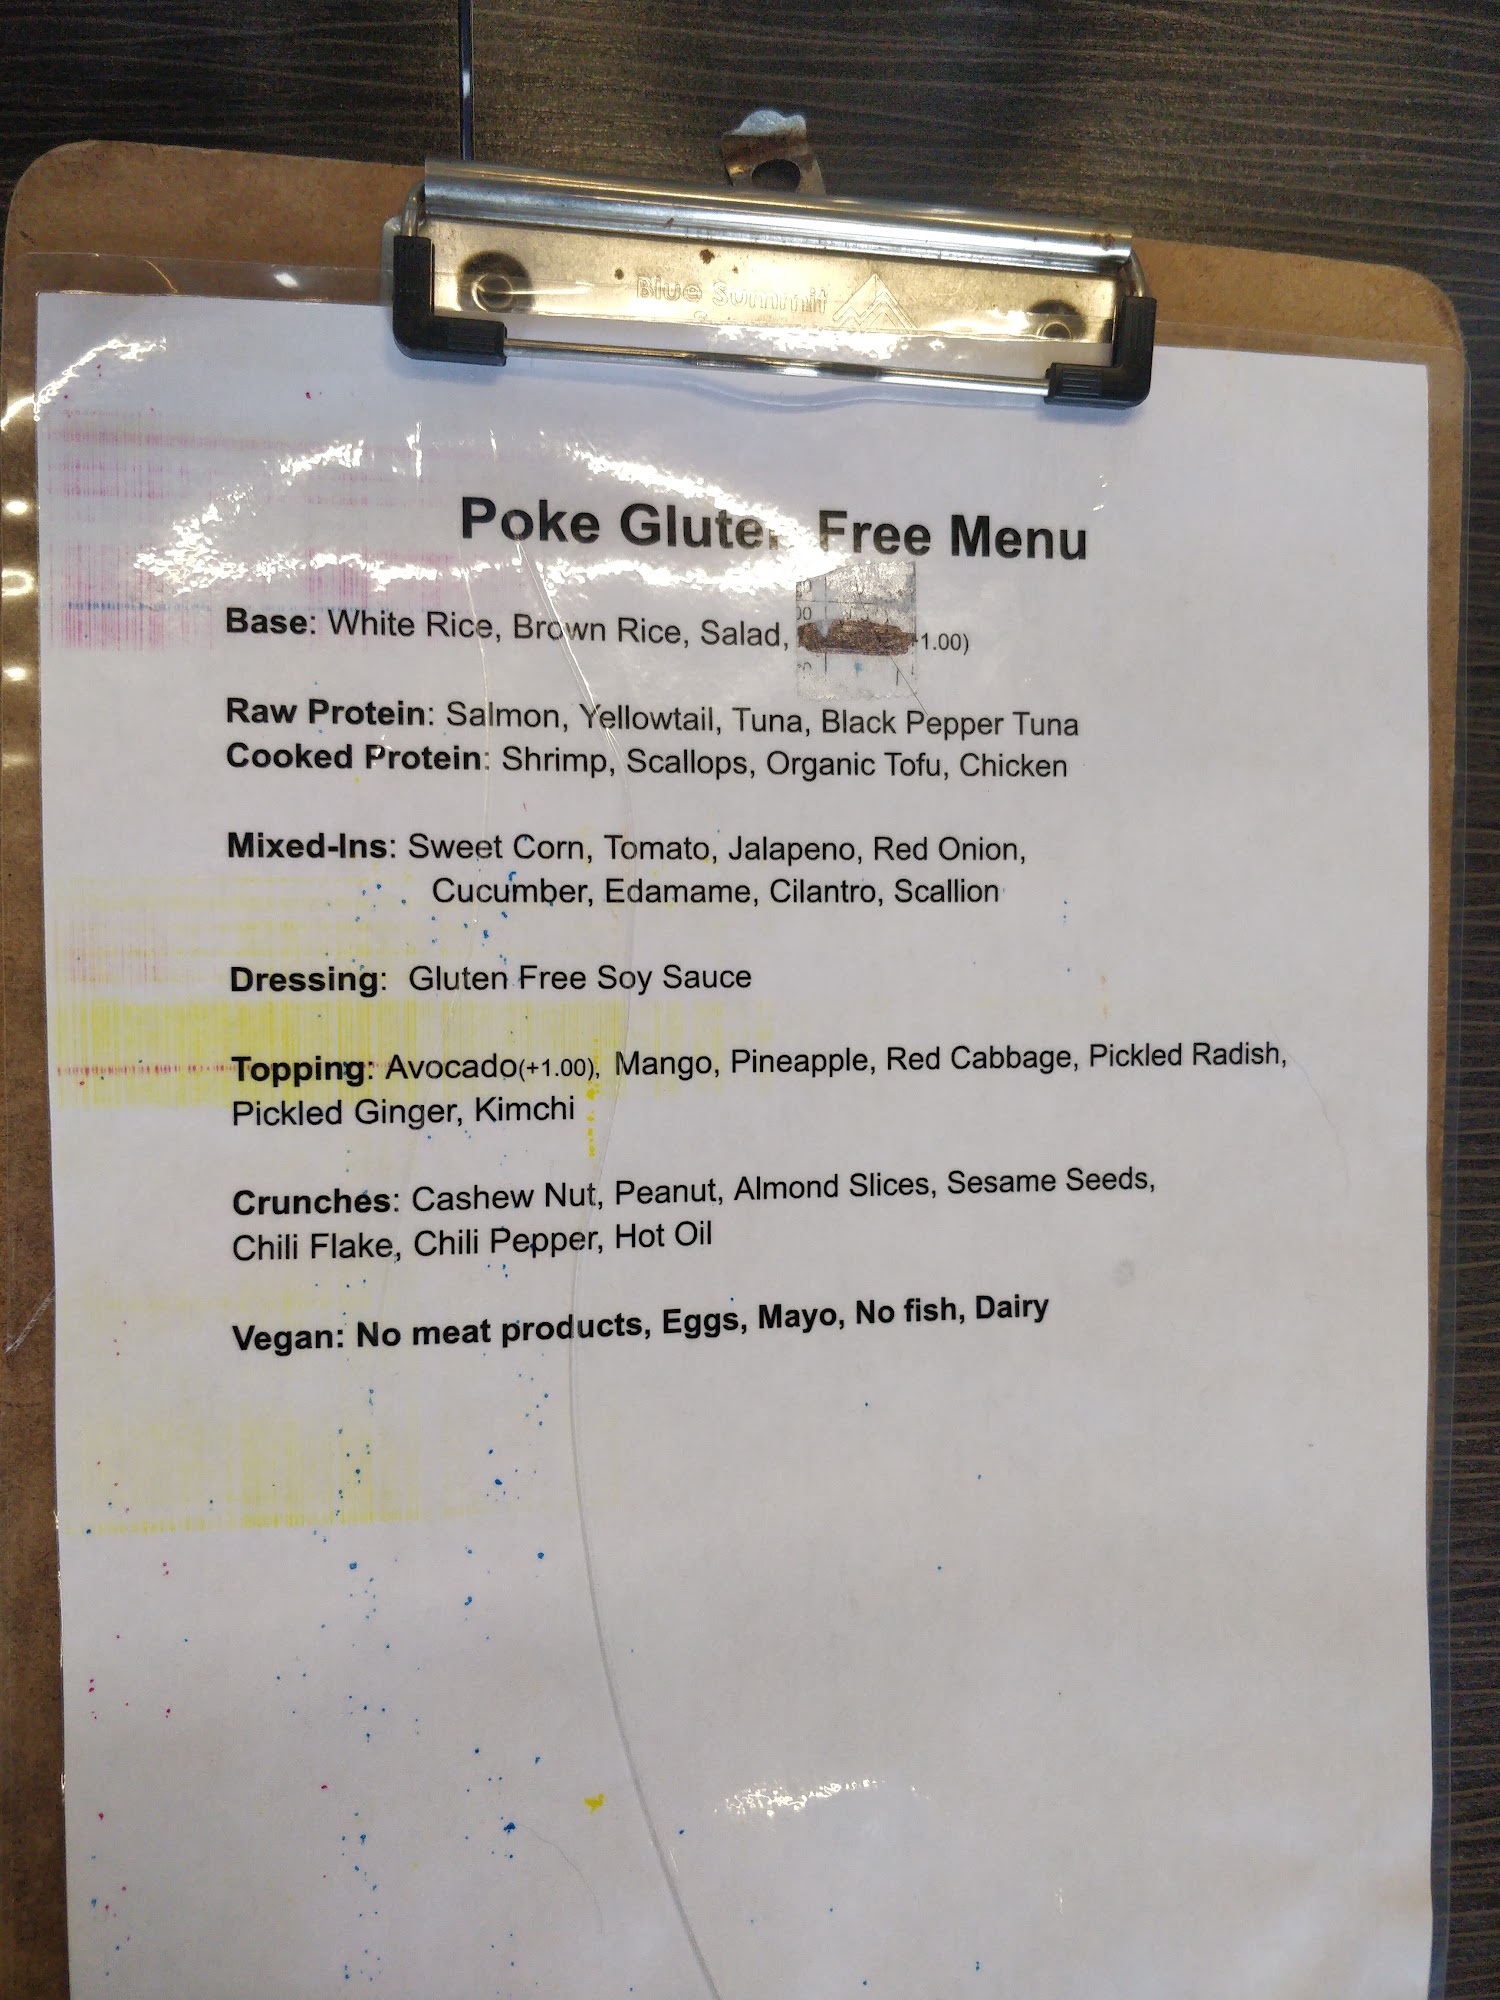 Blue Summit
Poke Gluten Free Menu
Base: White Rice, Brown Rice, Salad, +1.00)
Raw Protein: Salmon, Yellowtail, Tuna, Black Pepper Tuna
Cooked Protein: Shrimp, Scallops, Organic Tofu, Chicken
Mixed-Ins: Sweet Corn, Tomato, Jalapeno, Red Onion,
Cucumber, Edamame, Cilantro, Scallion
Dressing: Gluten Free Soy Sauce
Topping: Avocado(+1.00), Mango, Pineapple, Red Cabbage, Pickled Radish,
Pickled Ginger, Kimchi
Crunches: Cashew Nut, Peanut, Almond Slices, Sesame Seeds,
Chili Flake, Chili Pepper, Hot Oil
Vegan: No meat products, Eggs, Mayo, No fish, Dairy